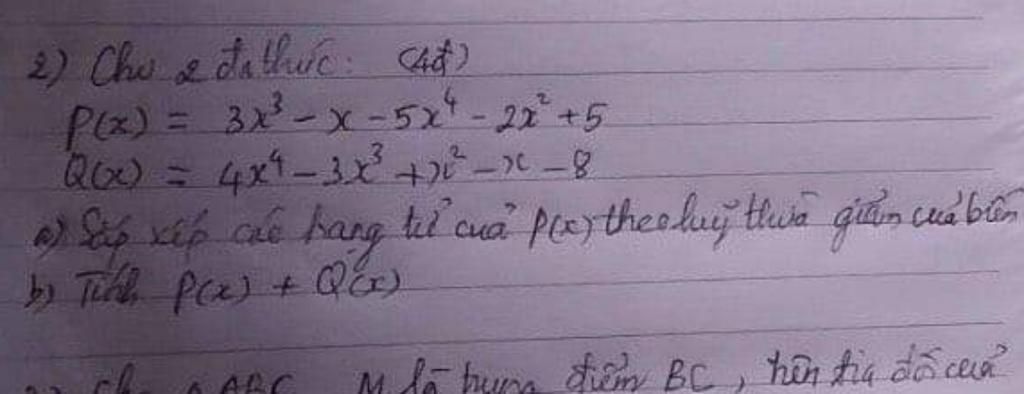 2) Cho 2 đa thức: (4đ)
P(x) = 3x³ - x - 5x⁴ - 2x² + 5
Q(x) = 4x⁴ - 3x³ + x² - x - 8
a) Sắp xếp các hạng tử của P(x) theo luỹ thừa giảm của biến
b) Tính P(x) + Q(x)
Δ ABC M là trung điểm BC, trên tia đối của